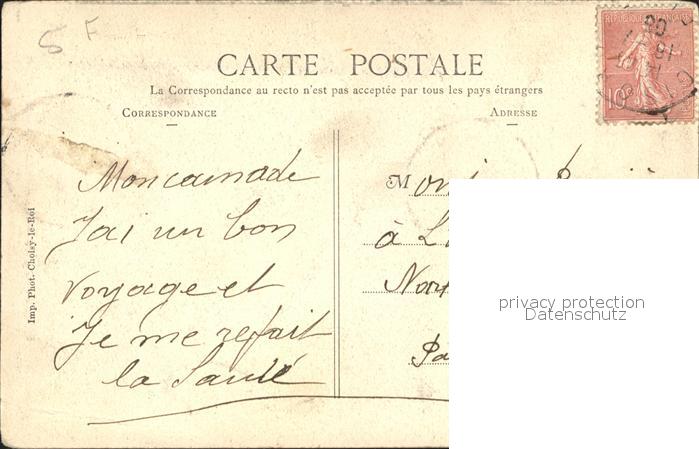 5 F
CARTE POSTALE
La Correspondance au recto n'est pas acceptée par tous les pays étrangers
CORRESPONDANCE
ADRESSE
RÉPUBLIQUE FRANÇAISE
10c
Mon camarade
J'ai un bon
voyage et
Je me refait
la Santé
M
à L
Pa
privacy protection
Datenschutz
Imp. Phot. Choisy-le-Roi